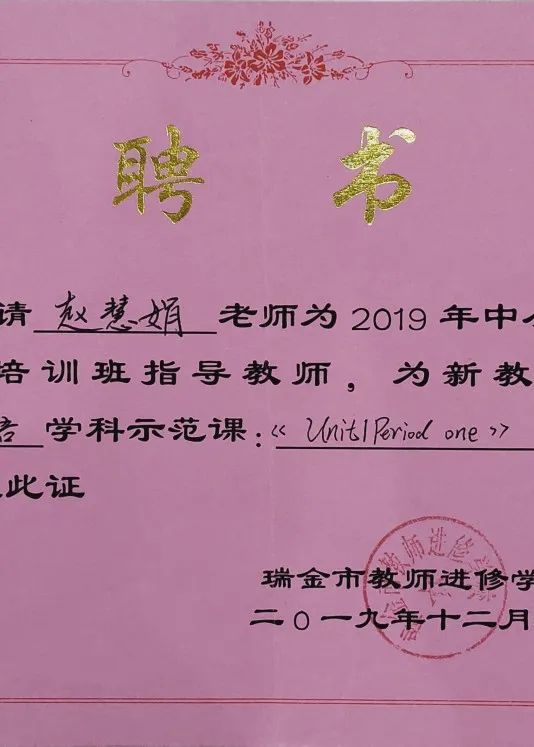 聘 书
请 赵慧娟 老师为 2019 年中
培训班指导教师，为新教
学科示范课：《 Unit1 Period one 》
此证
瑞金市教师进修学
二0一九年十二月